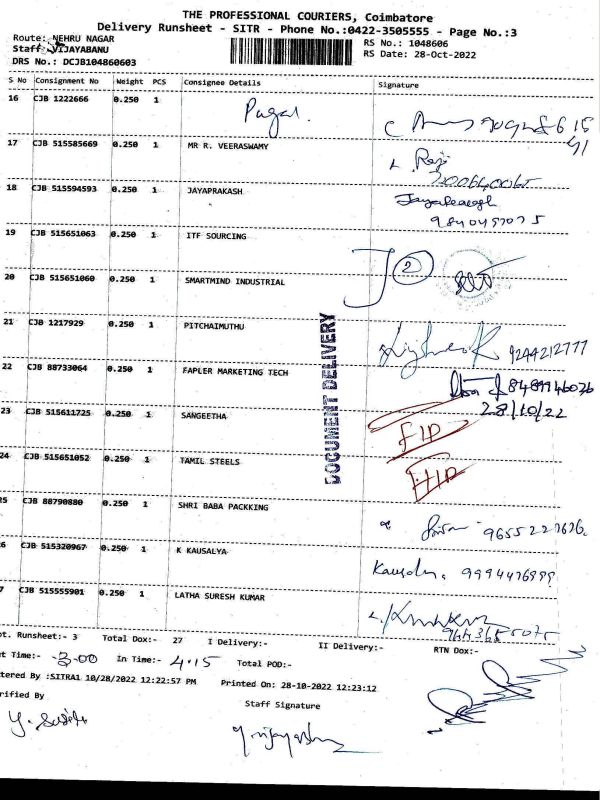 THE PROFESSIONAL COURIERS, Coimbatore
Delivery Runsheet - SITR - Phone No.:0422-3505555 - Page No.:3
Route: NEHRU NAGAR
RS No.: 1048606
Staff: VIJAYABANU
RS Date: 28-Oct-2022
DRS No.: DCJB104860603
S No Consignment No Weight PCS Consignee Details Signature
16 CJB 1222666 0.250 1 Pugal.
17 CJB 515585669 0.250 1 MR R. VEERASWAMY
18 CJB 515594593 0.250 1 JAYAPRAKASH
19 CJB 515651063 0.250 1 ITF SOURCING
20 CJB 515651060 0.250 1 SMARTMIND INDUSTRIAL 2
21 CJB 1217929 0.250 1 PITCHAIMUTHU 9244212777
22 CJB 88733064 0.250 1 FAPLER MARKETING TECH
28/10/22
23 CJB 515611725 0.250 1 SANGEETHA
24 CJB 515651052 0.250 1 TAMIL STEELS
DOCUMENT DELIVERY
25 CJB 88790880 0.250 1 SHRI BABA PACKKING
26 CJB 515320967 0.250 1 K KAUSALYA
27 CJB 515555901 0.250 1 LATHA SURESH KUMAR
ot. Runsheet:- 3 Total Dox:- 27 I Delivery:- II Delivery:- RTN Dox:-
ut Time:- 3.00 In Time:- 4.15 Total POD:-
tered By :SITRA1 10/28/2022 12:22:57 PM Printed On: 28-10-2022 12:23:12
rified By Staff Signature